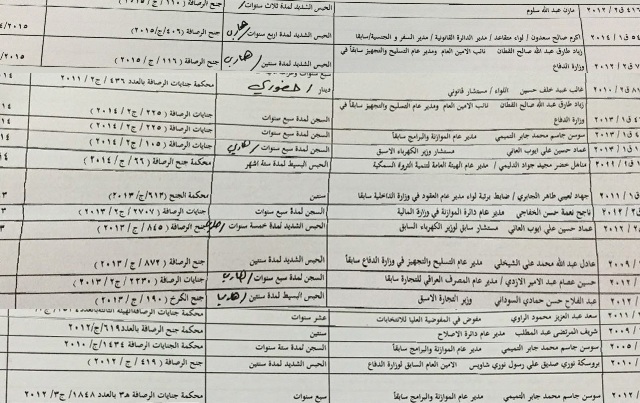 ٤١٦ ق٢ / ٢٠١٢ مازن عبد الله سلوم الحبس الشديد لمدة ثلاث سنوات جنح الرصافة ( ١١٠ / ج / ٢٠١٥ )
٥٤ ق١ / ٢٠١٤ اكرم صالح سعدون / لواء متقاعد / مدير الدائرة القانونية / مدير السفر و الجنسية/سابقا الحبس الشديد لمدة اربع سنوات / هارب جنح الرصافة (٤٠٦/ج/٢٠١٥) ٢٠١٥
زياد طارق عبد الله صالح القطان نائب الامين العام ومدير عام التسليح والتجهيز سابقاً في
ق٢ / ٢٠١٢ وزارة الدفاع الحبس الشديد لمدة سنتين / هارب جنح الرصافة ( ١١٦ / ج / ٢٠١٥ ) ٢٠١٥
ق٢ / ٢٠١٠ غائب عبيد خلف حسين اللواء / مستشار قانوني دينار / حضوري محكمة جنايات الرصافة / ٤٣٦ / ج٢ / ٢٠١١ ١٤
زياد طارق عبد الله صالح القطان نائب الامين العام ومدير عام التسليح والتجهيز سابقاً في
ق٤ / ٢٠١٣ وزارة الدفاع السجن لمدة سبع سنوات جنايات الرصافة ( ٢٢٥ / ج٢ / ٢٠١٤ ) ١٤
ق١ / ٢٠١٣ سوسن جاسم محمد جابر التميمي مدير عام الموازنة والبرامج سابقاً السجن لمدة سبع سنوات جنايات الرصافة ( ٢٢٥ / ج٢ / ٢٠١٤ ) ١٤
ق١ / ٢٠١٣ عماد حسين علي ايوب العاني مستشار وزير الكهرباء الاسبق السجن لمدة سبع سنوات / هارب جنايات الرصافة ( ١٠٥ / ج٢ / ٢٠١٤ ) ١٤
ق١ / ٢٠١٢ مناهل خضر مجيد جواد الدليمي / مدير عام الهيئة العامة لتنمية الثروة السمكية الحبس البسيط لمدة ستة اشهر محكمة جنح الرصافة ( ٦٦ / ج / ٢٠١٤ )
ق١ / ٢٠١١ جهاد لعيبي طاهر الجابري / ضابط برتبة لواء مدير عام العقود في وزارة الداخلية سابقا سنتين محكمة الجنح (٦١٣/ج/٢٠١٣) ٣
ق٢ / ٢٠١٢ ناجح نعمة حسن الخفاجي مدير عام دائرة الموازنة في وزارة المالية السجن لمدة سبع سنوات جنايات الرصافة ( ٢٧٠٧ / ج٢ / ٢٠١٣ )
٢٠١٢ عماد حسين علي ايوب العاني مستشار سابق لوزير الكهرباء السابق الحبس الشديد لمدة خمسة سنوات / هارب جنح الرصافة ( ٨٤٥ / ج / ٢٠١٣ ) ٣
٢٠٠٩ عادل عبد الله محمد علي الشيخلي مدير عام التسليح والتجهيز في وزارة الدفاع سابقاً الحبس الشديد لمدة سنتين جنح الرصافة ( ٨٧٢ / ج / ٢٠١٣ )
حسين عصام عبد الامير الازدي / مدير عام المصرف العراقي للتجارة سابقا السجن لمدة سبع سنوات / هارب جنايات الرصافة ( ٢٢٣٠ / ج٢ / ٢٠١٣ )
٢٠١٢ عبد الفلاح حسن حمادي السوداني وزير التجارة الاسبق الحبس البسيط لمدة سنتين / هارب جنح الكرخ ( ١٩٠ / ج / ٢٠١٣ )
٢٠١١ سعد عبد العزيز محمود الراوي مفوض في المفوضية العليا للانتخابات عشر سنوات
٢٠٠٩ شريف المرتضى عبد المطلب مدير عام دائرة الاصلاح سنتين محكمة جنح الرصافة بالعدد٦١٩/ج/٢٠١٢
٢٠٠٥ سوسن جاسم محمد جابر التميمي مدير عام الموازنة والبرامج سابقاً السجن لمدة ستة سنوات محكمة الجنايات الرصافة ١٤٣٤/ج/٢٠١٠
٢٠١٠ بروسكة نوري صديق علي رسول نوري شاويس الامين العام السابق لوزارة الدفاع الحبس الشديد لمدة سنتين جنح الرصافة ( ٤١٩ / ج / ٢٠١٢ )
٢٠١٢ سوسن جاسم محمد جابر التميمي مدير عام الموازنة والبرامج سابقاً سبع سنوات محكمة جنايات الرصافة ه٣ بالعدد ١٨٤٨ / ج٣ / ٢٠١٢